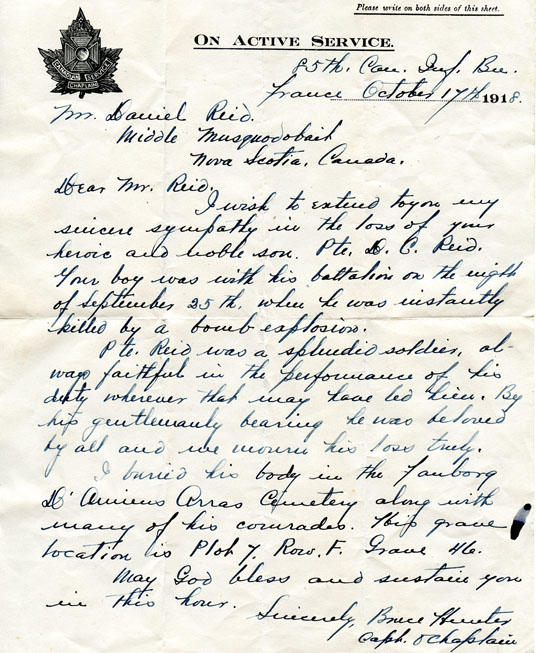 Please write on both sides of this sheet.
CANADIAN SERVICE
CHAPLAIN
ON ACTIVE SERVICE.
85th. Can. Inf. Bn.
France October 17th 1918.
Mr. Daniel Reid.
Middle Musquodobait
Nova Scotia, Canada.
Dear Mr. Reid,
I wish to extend to you my
sincere sympathy in the loss of your
heroic and noble son. Pte. D. C. Reid.
Your boy was with his battalion on the night
of September 25th. when he was instantly
killed by a bomb explosion.
Pte. Reid was a splendid soldier, al-
ways faithful in the performance of his
duty wherever that may have led him. By
his gentlemanly bearing he was beloved
by all and we mourn his loss truly.
I buried his body in the Fauborg
D'Amiens Arras Cemetery along with
many of his comrades. His grave
location is Plot 7. Row. F. Grave 46.
May God bless and sustain you
in this hour.
Sincerely, Bruce Hunter
Capt. & Chaplain